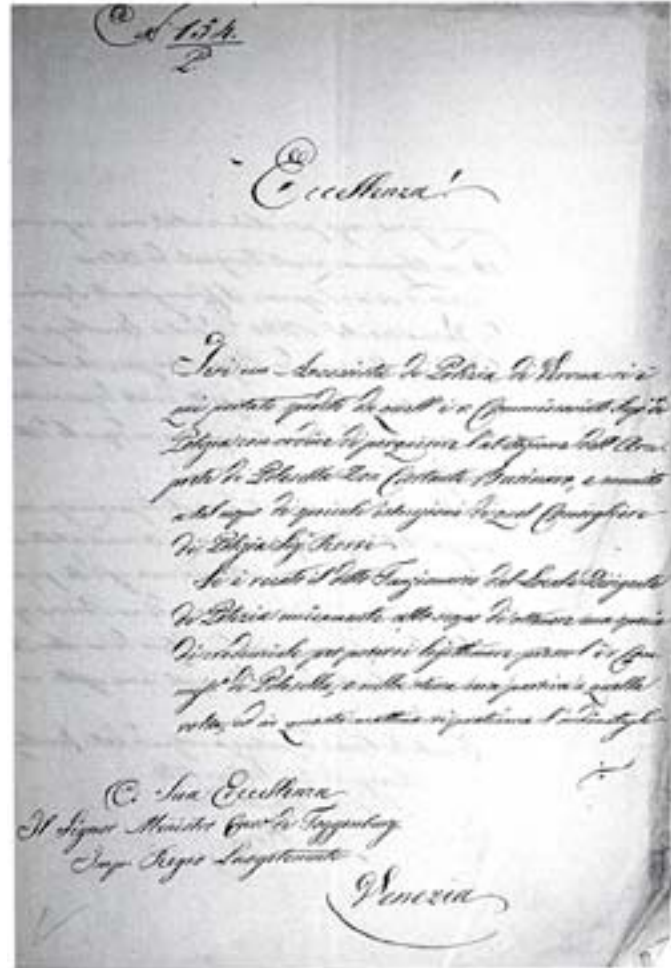 N 154.
P
Eccellenza!
Ieri un Accessista di Polizia di Verona si è
qui portato spedito da quell' i. r. Commissariato Sup.e di
Polizia con ordine di perquisire l'abitazione dell' Arci
prete di Polesella Don Costante Businaro, e munito
a tal uopo di speciali istruzioni di quel Consigliere
di Polizia Sig. Rossi.
Si è recato il detto Funzionario dal Locale Dirigente
di Polizia unicamente allo scopo di ottenere una specie
di credenziale per potersi legittimare presso l' i. r. Com
di Polesella, e nella stessa sera partiva a quella
volta, ed in questa mattina si praticava
A Sua Eccellenza
Il Signor Ministro Cav.e de Toggenburg
Imp. Regio Luogotenente
Venezia